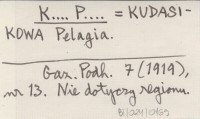 K.... P.... = KUDASI-
KOWA Pelagia.
Gaz. Podh. 7 (1919),
nr 13. Nie dotyczy regionu.